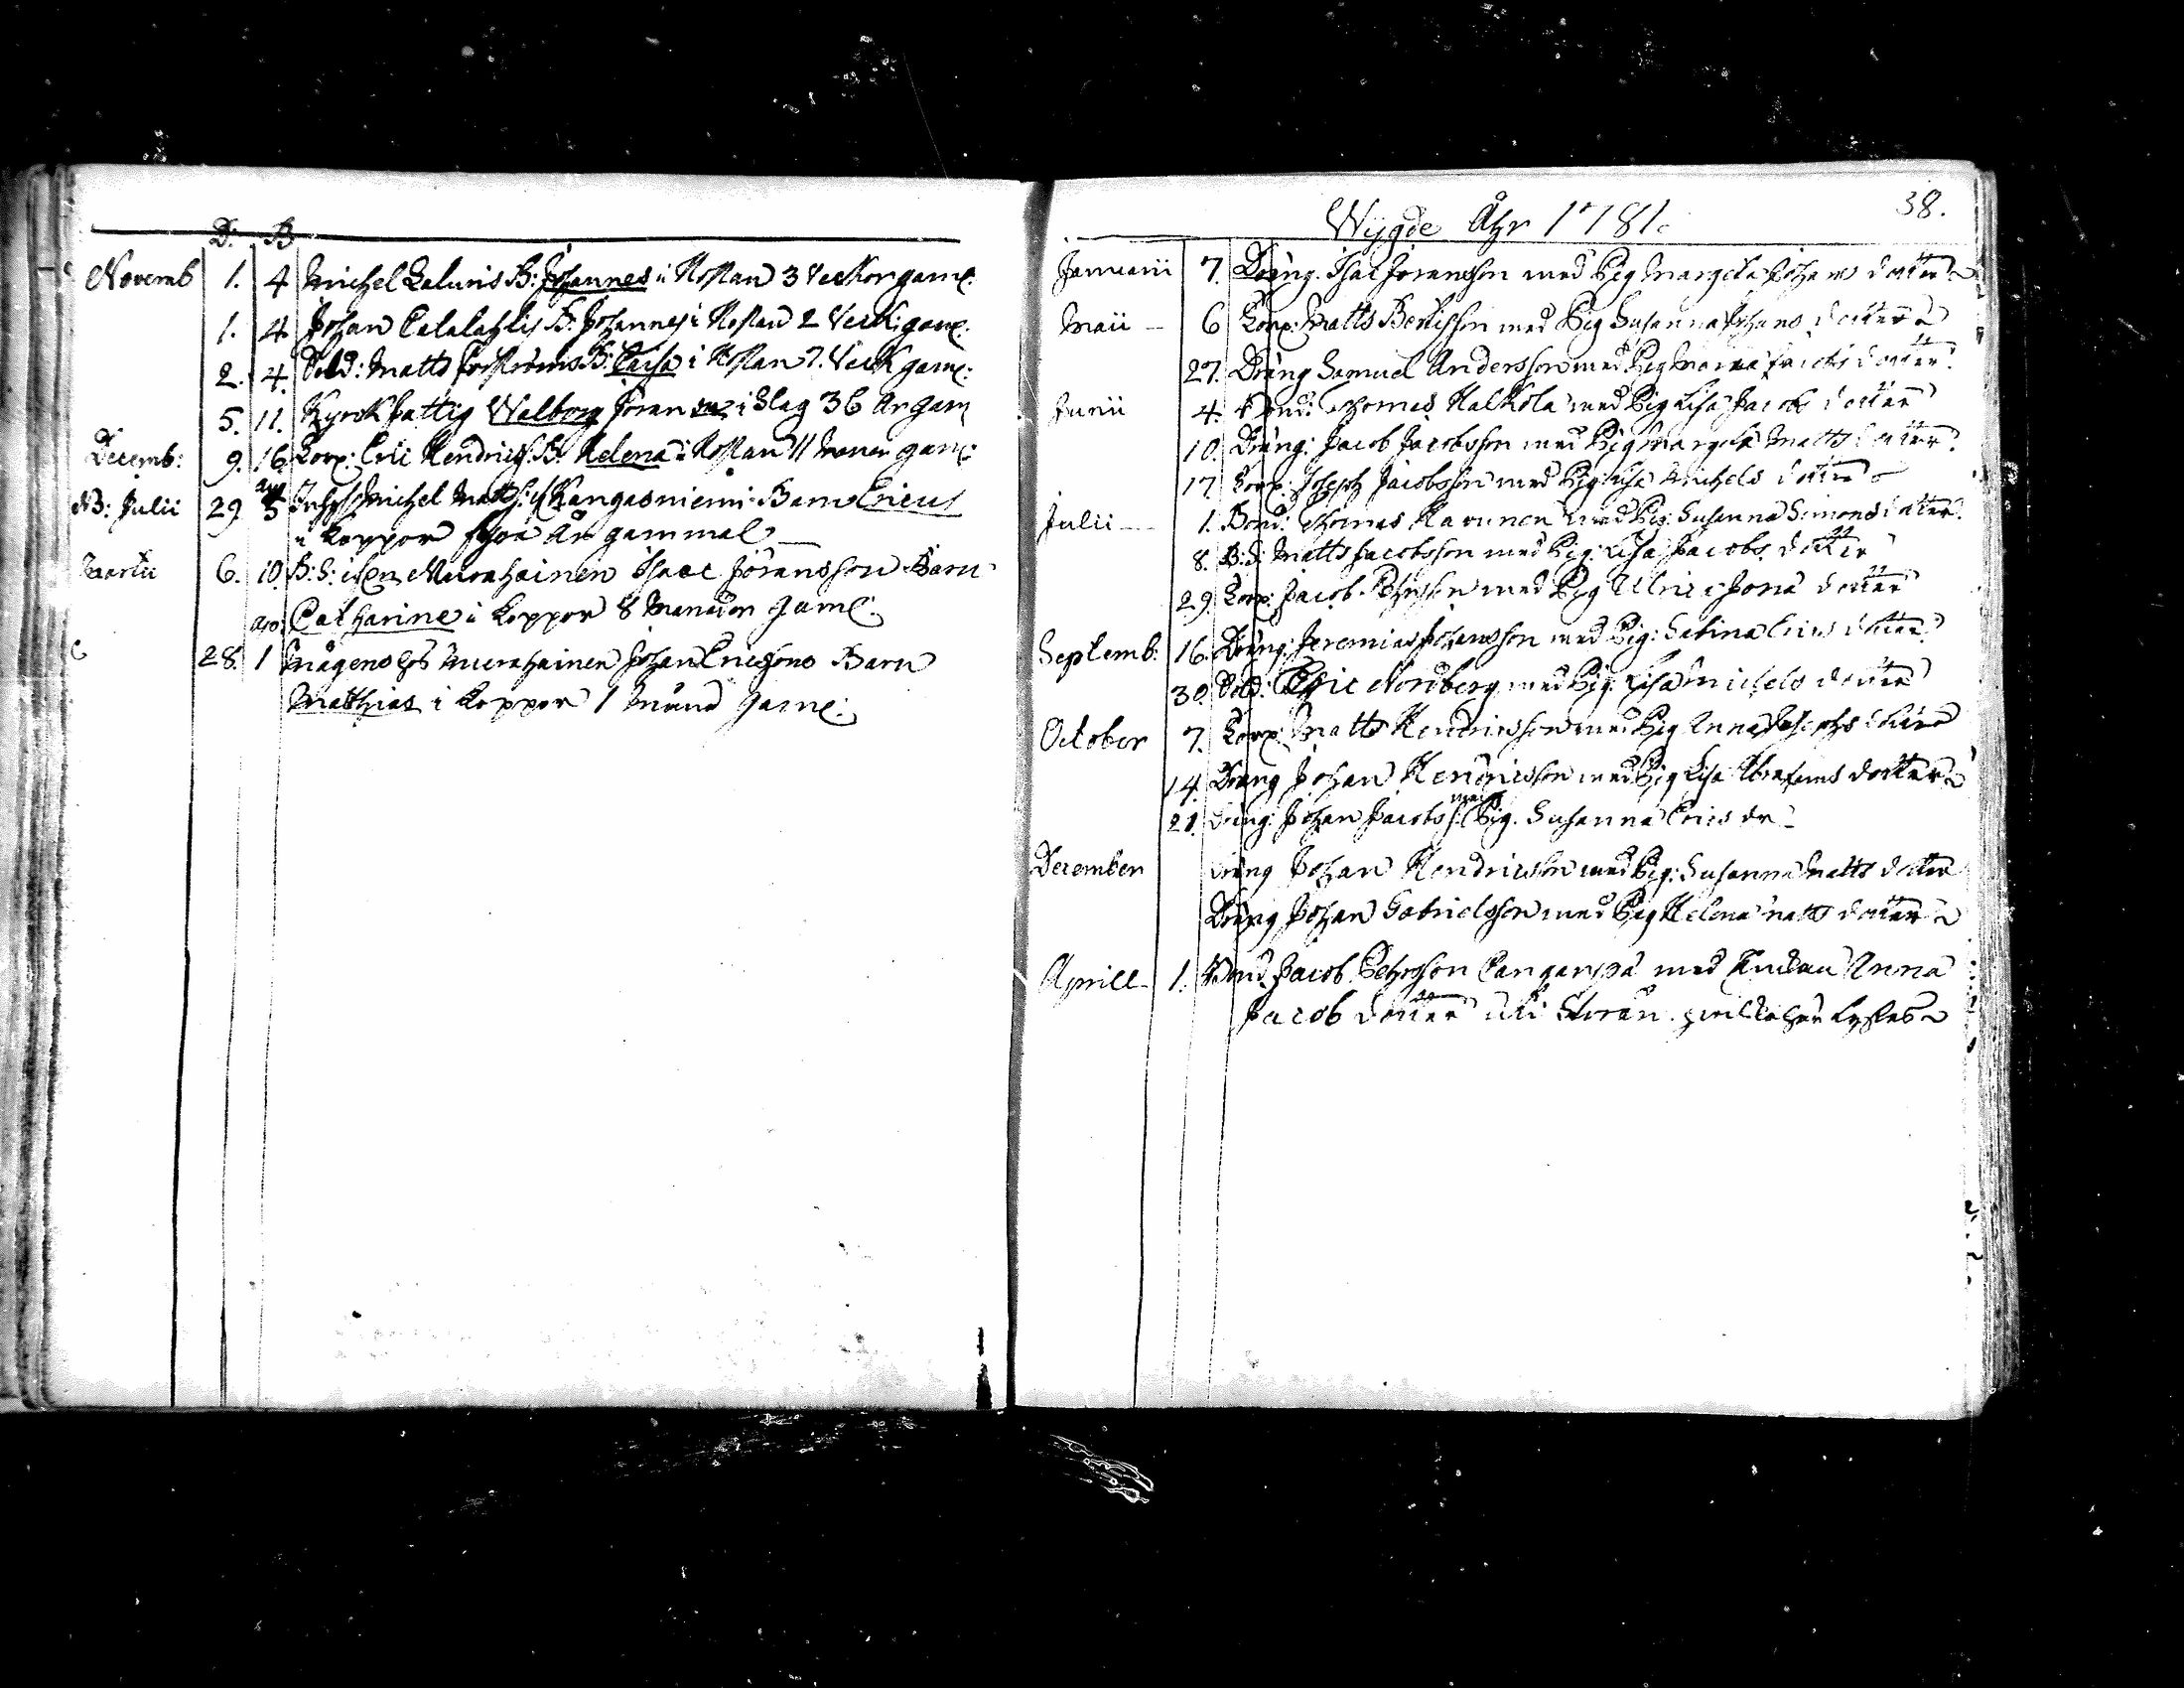 D: B
Novemb 1. 4 Michel Laluris B: Johannes i Hostan 3 Veckor gaml:
1. 4 Johan Calalahlis B: Johannes i Hostan 2 Veck: gaml:
2. 4. Sold: Matts B: Caisa i Hostan 7. Veck gaml:
5. 11. Kyrck fattig Walborg Jöran i Slag 36 År gam
Decemb: 9. 16 Korp: Eric Hendrics: B: Helena i Hostan 11 gaml:
NB: Julii 29. 5 Inhys: Michel Matts: Kangasniemi Barn Ericus
i Koppor År gammal
Martii 6. 10. B: S: Murahainen Isaac Jöransson Barn
Catharina i Koppor 8 Manader gaml:
28. 1 Mågens Murahainen Johan Ericsons Barn
Matthias i Koppor 1 Månad gaml:
38.
Wijgde Åhr 1781.
Januarii 7. Dräng. Isac Jöransson med Pig Margeta Johans dotter
Maii 6 Korp: Matts Bertilsson med Pig Susanna Johans dotter
27. Dräng Samuel Andersson med Pig Maria Jacobs dotter
Junii 4. Bond: Thomas Halkola med Pig Lisa Jacobs dotter
10. Dräng: Jacob Jacobsson med Pig Margeta Matts dotter
17. Korp: Joseph Jacobsson med Pig Lisa Michels dotter
Julii 1. Bond: Thomas Karunen med Pig: Susanna Simons dotter
8. B: S: Matts Jacobsson med Pig: Lisa Jacobs dotter
29. Korp: Jacob Pehrsson med Pig Ulrica dotter
Septemb: 16. Dräng: Jeremias Johansson med Pig: Sabina Erics dotter
30. Sold: Eric Nordberg med Pig. Lisa Michels dotter
October 7. Korp: Matts Hendricsson med Pig Anna Josephs dotter
14. Dräng Johan Hendricsson med Pig Lisa Abrahams dotter
21. Dräng: Johan Jacobs: med Pig. Susanna Erics dr
December Dräng Johan Hendricsson med Pig: Susanna Matts dotter
Dräng Johan Gabrielsson med Pig Helena Matts dotter
Aprill 1. Bond. Jacob Pehrsson med Enckan Anna
Jacob dotter